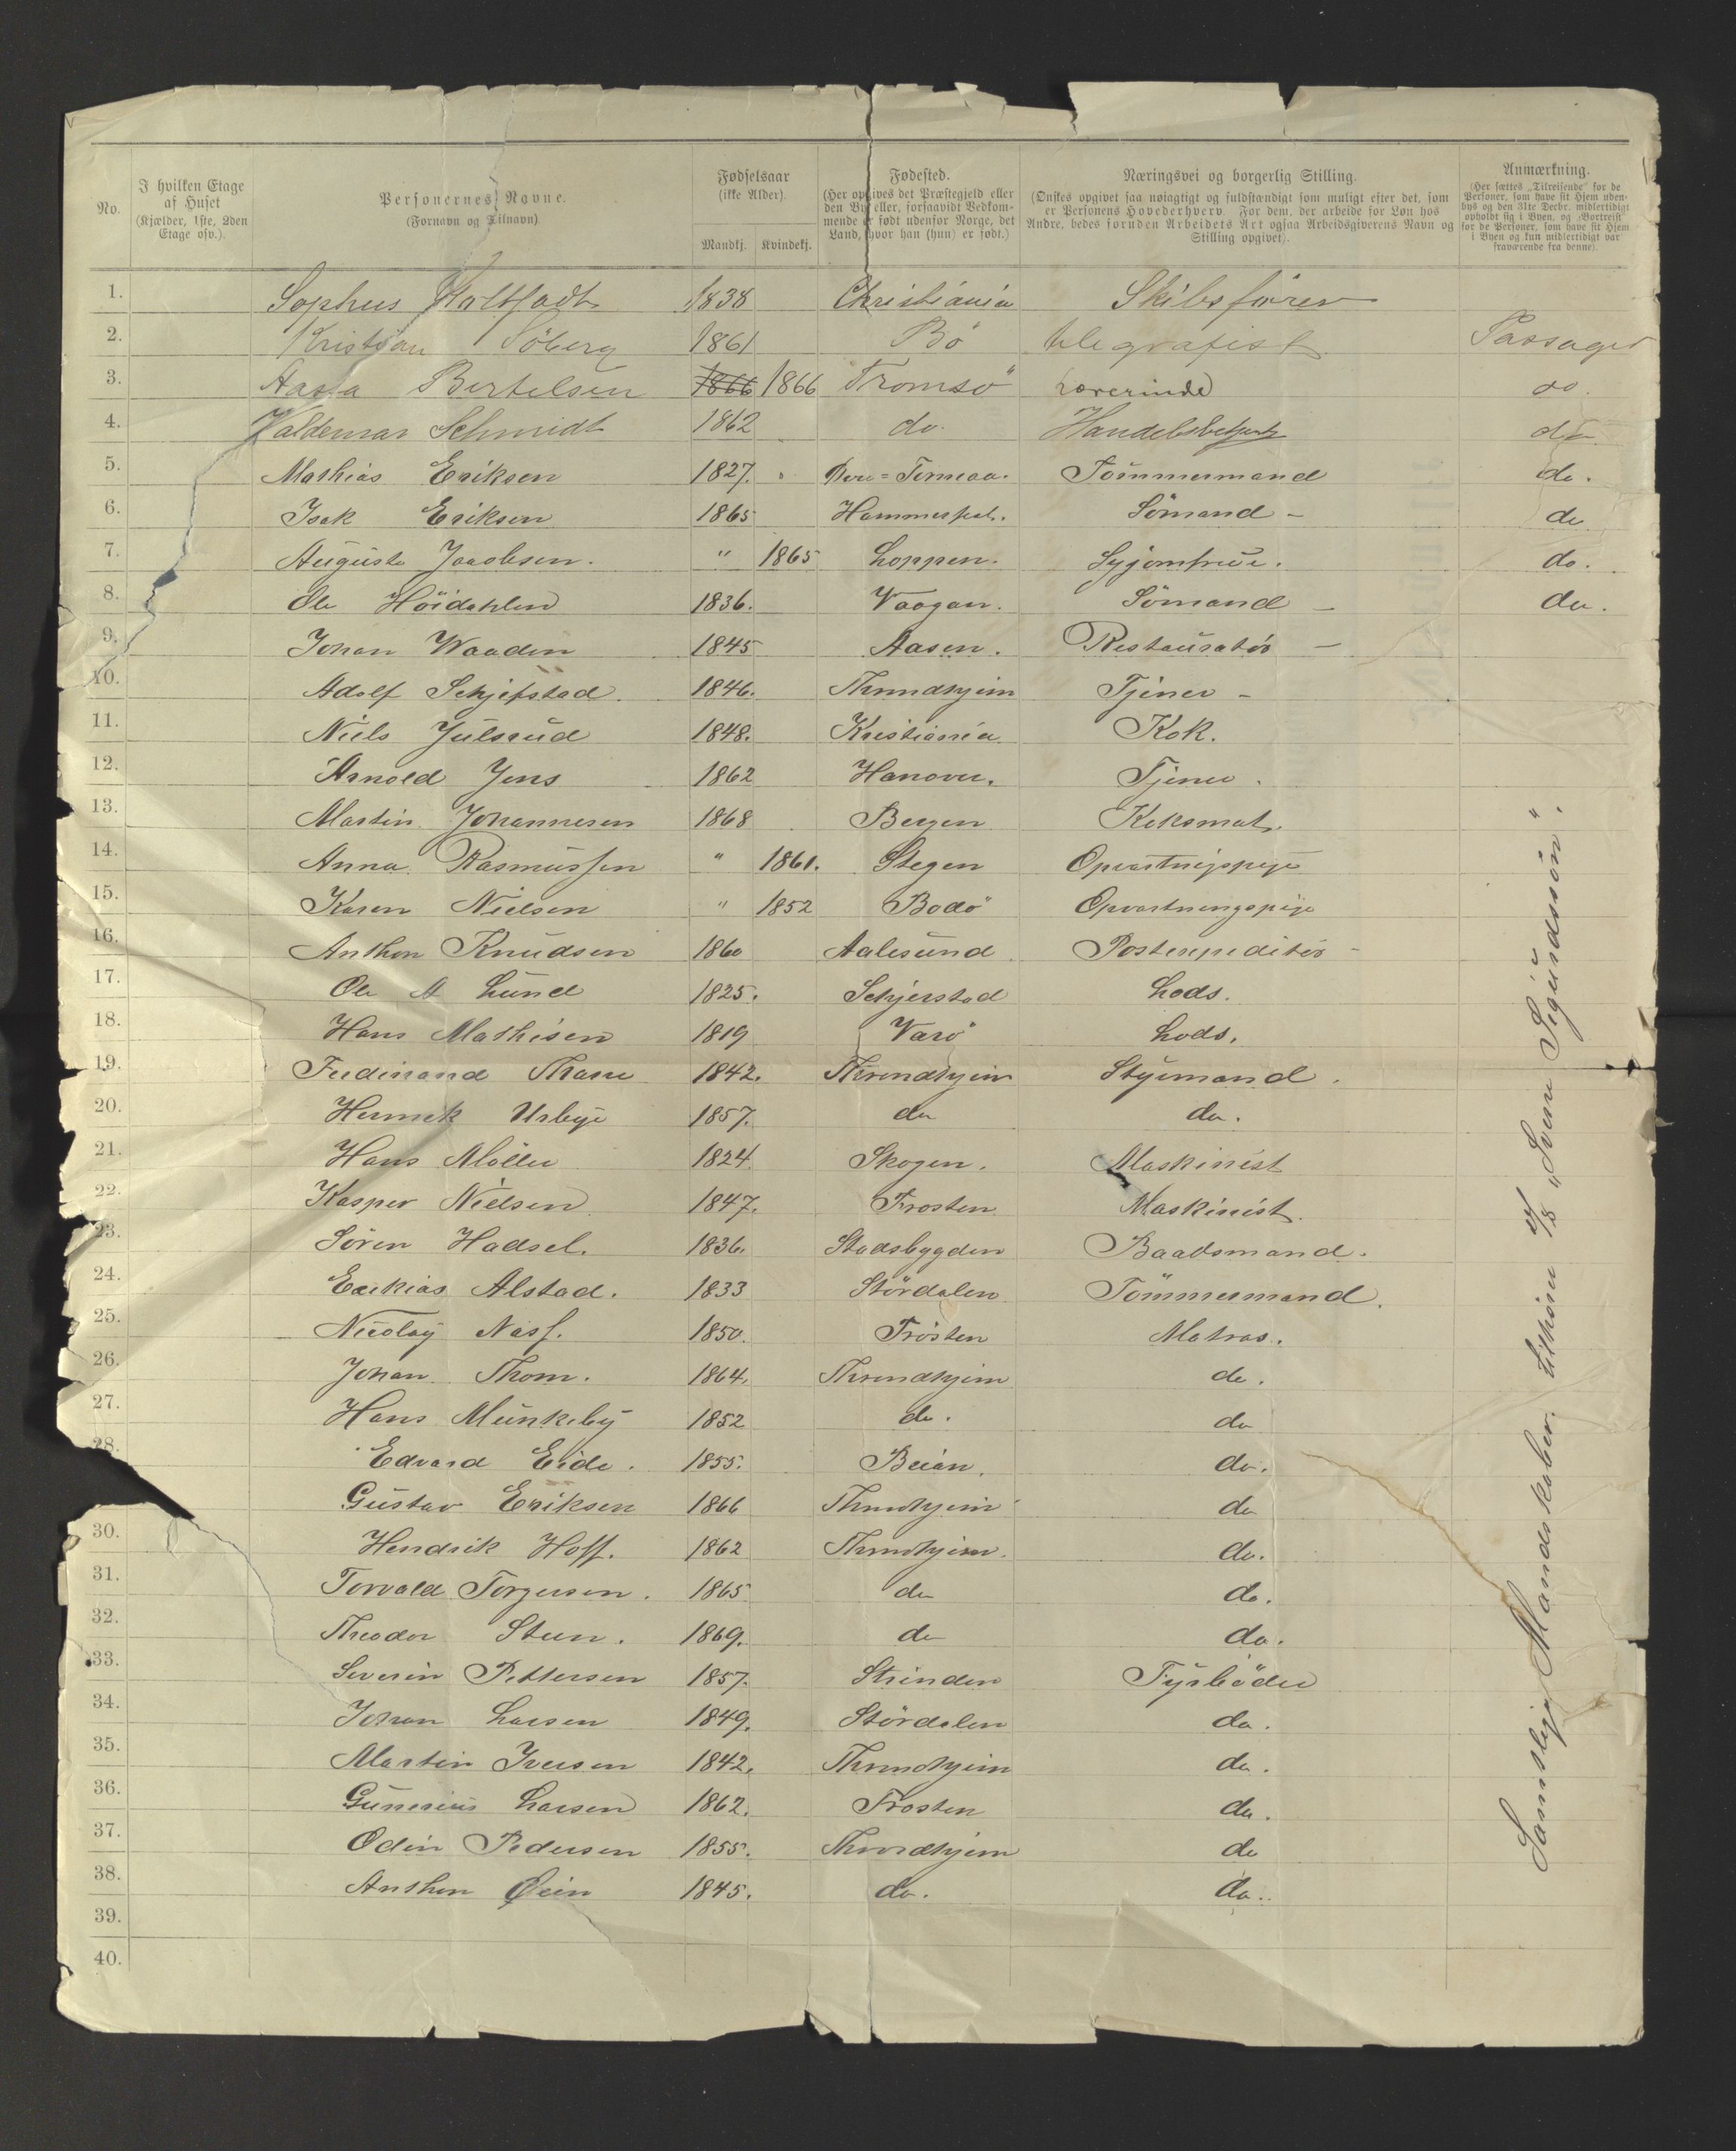 No.
I hvilken Etage af Huset (Kjælder, 1ste, 2den Etage osv.).
Personernes Navne. (Fornavn og Tilnavn).
Fødselsaar (ikke Alder). Mandkj. Kvindekj.
Fødested. (Her opgives det Præstegjeld eller den By eller, forsaavidt Vedkommende er født udenfor Norge, det Land, hvor han (hun) er født.)
Næringsvei og borgerlig Stilling. (Ønskes opgivet saa nøiagtigt og fuldstændigt som muligt efter det, som er Personens Hovederhverv. For dem, der arbeide for Løn hos Andre, bedes foruden Arbeidets Art ogsaa Arbeidsgiverens Navn og Stilling opgivet).
Anmærkning. (Her sættes „Tilreisende" for de Personer, som have sit Hjem udenbys og den 31te Decbr. midlertidigt opholdt sig i Byen, og „Bortreist" for de Personer, som have sit Hjem i Byen og kun midlertidigt var fraværende fra denne).
1. Sophus 1838 Christiania Skibsfører
2. Kristian Söberg 1861 Bö telegrafist Passager
3. Bertelsen 1866 1866 Tromsö Lærerinde do.
4. Valdemar Schmidt 1862 do. Handelsbetjent do
5. Mathias Eriksen 1827. Torneaa. Tömmermand do.
6. Isak Eriksen 1865 Hammerfest. Sömand - do
7. Augusta Jacobsen. " 1865 Loppen. Syjomfrue. do.
8. Ole Höidahlen 1836. Vaagan. Sömand - do.
9. Johan Waaden 1845 Aasen. Restauratör -
10. Adolf Schjefstad. 1846. Throndhjem Tjener -
11. Niels Julsrud 1848. Kristiania Kok.
12. Arnold Jens 1862 Hanover. Tjener.
13. Martin Johannesen 1868 Bergen Koksmat.
14. Anna Rasmussen " 1861. Stegen Opvartningspige
15. Karen Nielsen " 1852 Bodö Opvartningspige
16. Anthon Knudsen 1860 Aalesund Postexpeditör -
17. Ole A Lund 1825. Schjerstad Lods.
18. Hans Mathisen 1819 Varö Lods.
19. Ferdinand 1842. Throndhjem Styrmand.
20. Henrik Urbye 1857. do do.
21. Hans Möller 1824. Skogen. Maskinist
22. Kasper Nielsen 1847. Frosten Maskinist.
23. Sören Hadsel. 1836. Stadsbygden Baadsmand.
24. Esekias Alstad. 1833 Stördalen Tömmermand.
25. Nicolay Næss. 1850. Frosten Matros.
26. Johan Thom. 1864. Throndhjem do.
27. Hans Munkeby 1852 do. do
28. Edvard Eide. 1855. Beian. do.
Gustav Eriksen 1866 Throndhjem do
30. Hendrik Hoff. 1862 Throndhjem. do.
31. Torvald Torgersen. 1865 do do.
32. Theodor Steen. 1869. do do.
33. Severin Pettersen 1857. Strinden Fyrböder
34. Johan Larsen 1849. Stördalen do.
35. Martin Iversen 1842. Throndhjem do.
36. Gunerius Larsen 1862. Frosten do.
37. Odin Pedersen 1855. Throndhjem do
38. Anthon Öien 1845. do. do.
39.
40.
Samtlige Mandskaber. tilhören D/S „Sverre Sigurdssön".